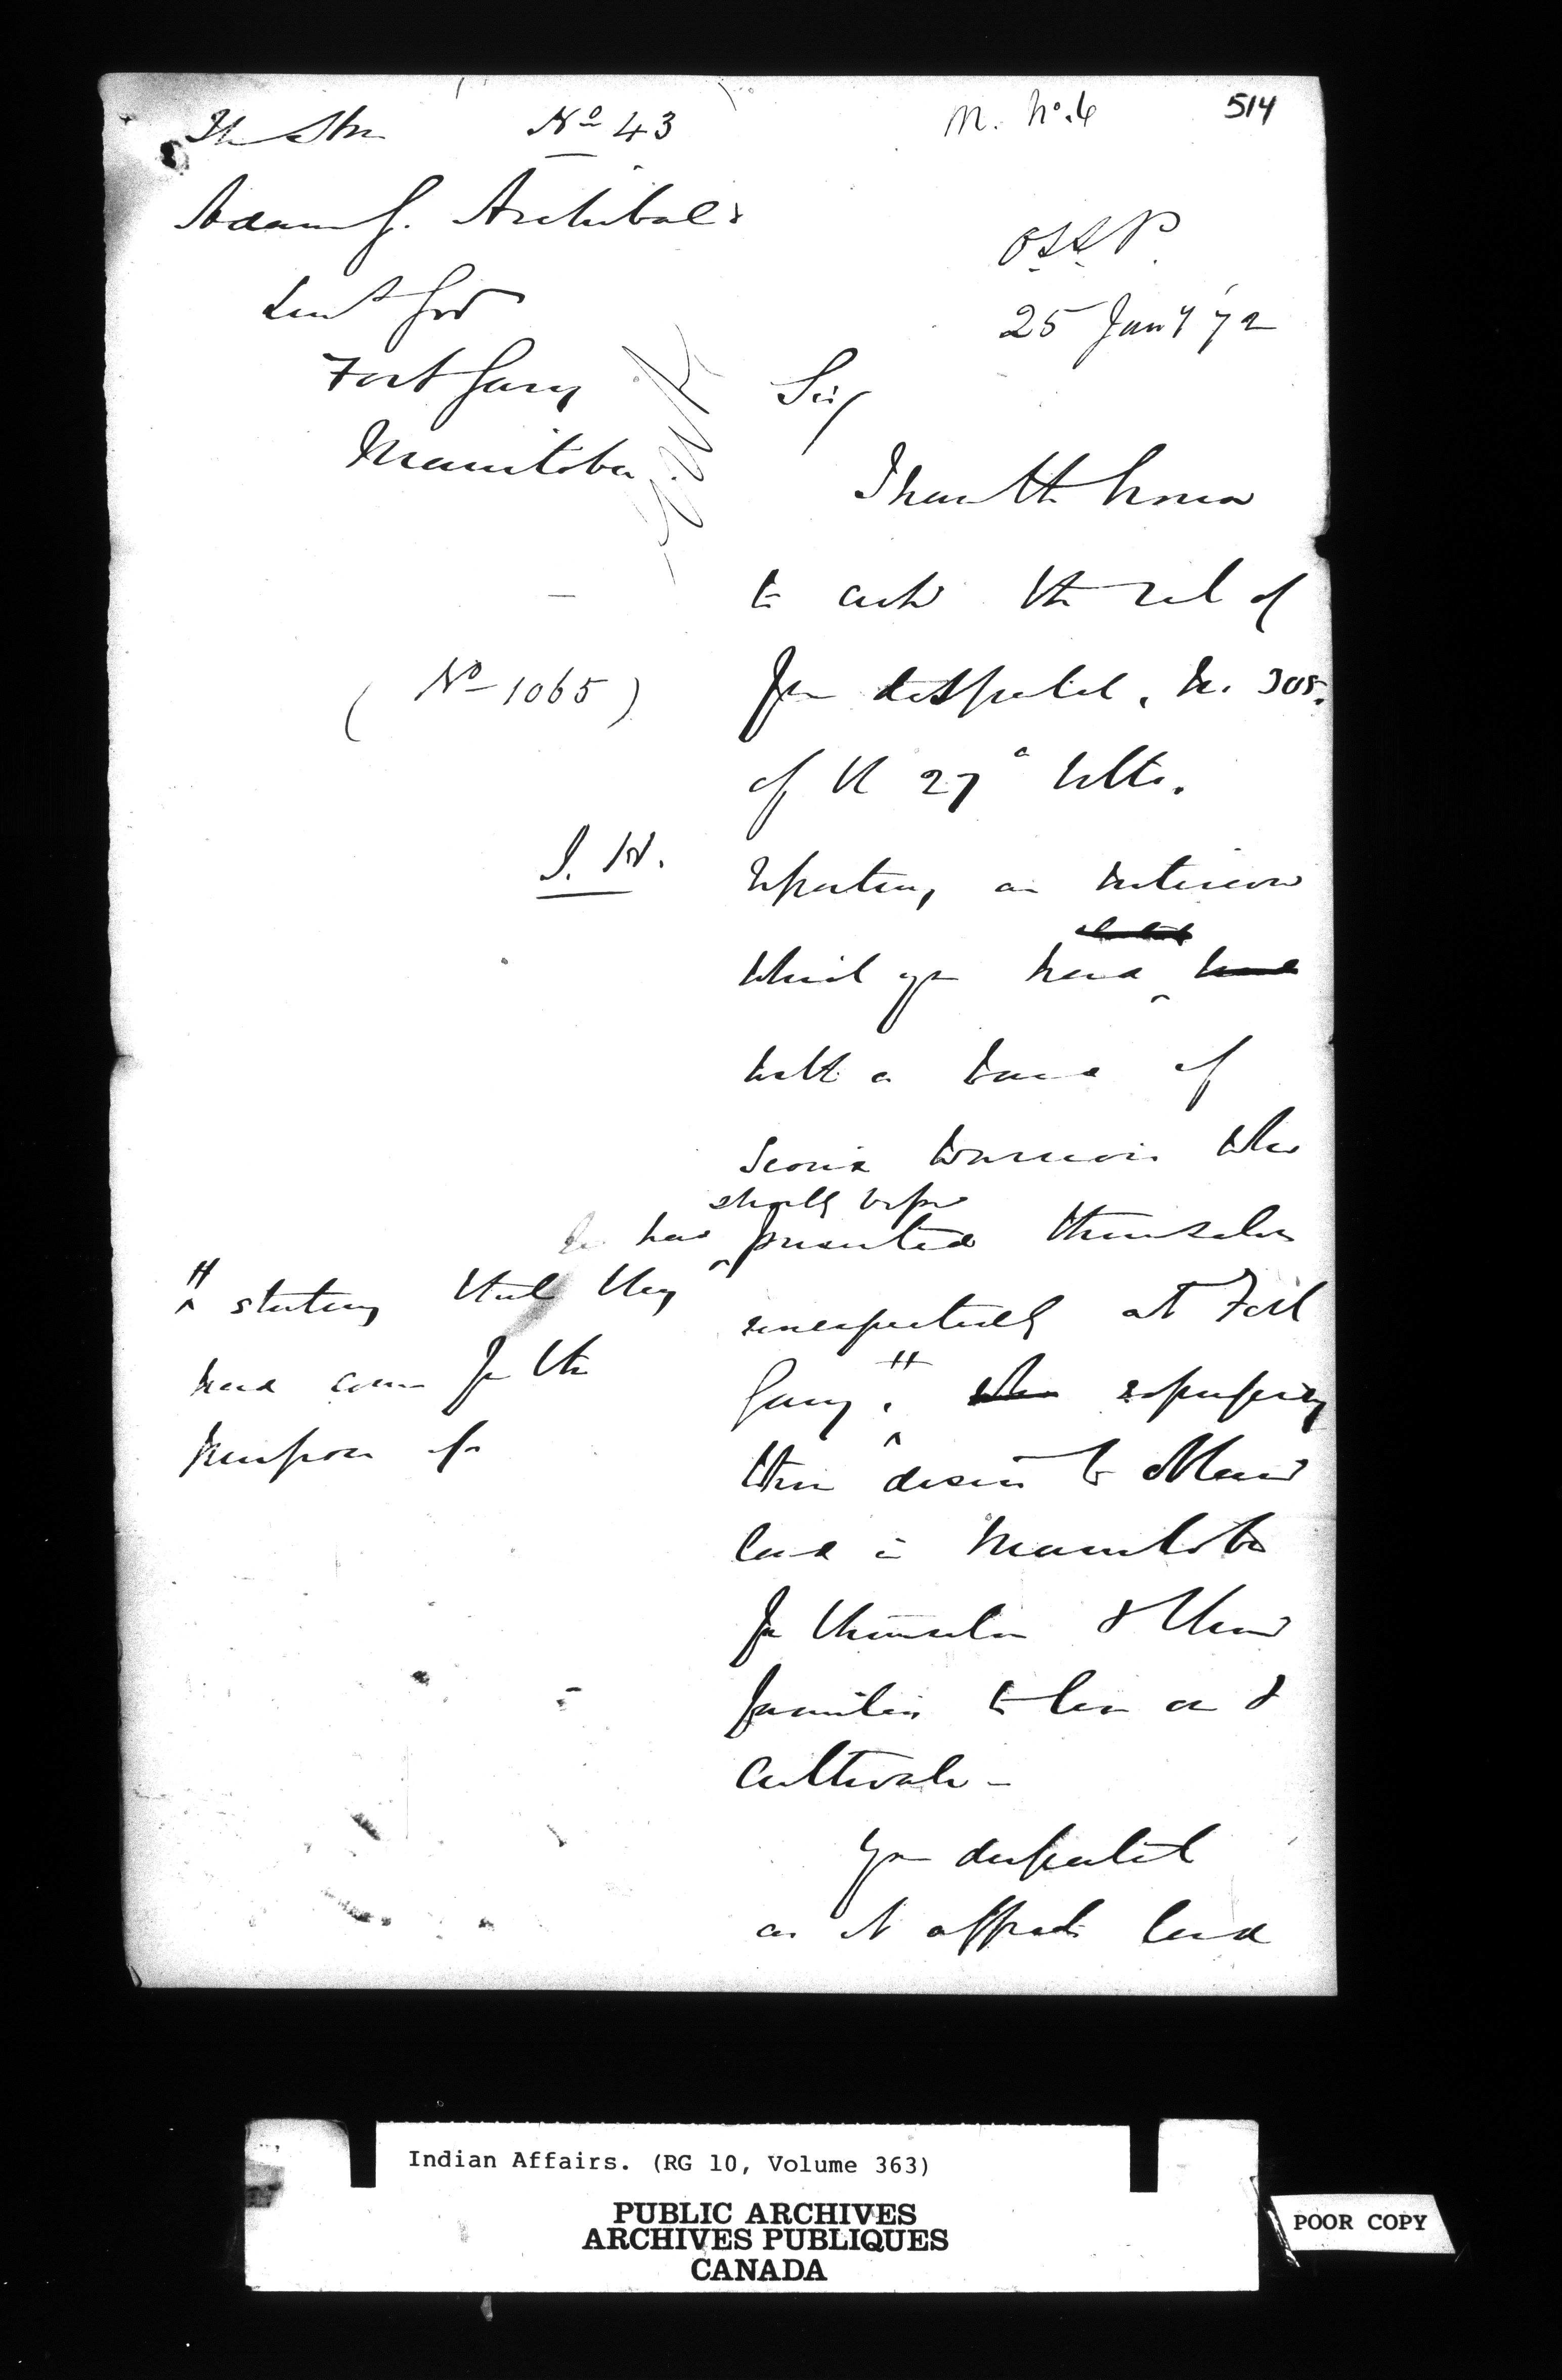 The Hon
No 43
M. No. 6
514
Adams G. Archibald
Lieut Gov
Fort Garry
Manitoba
O.S.S.P.
25 Jany '72
Sir,
I have the honor
to ackn the rect of
(No 1065)
Your despatch, No. 305.
of the 27th Ulto.
reporting an interview
which you had
with a band of
Sioux warriors who
shortly before
had presented themselves
unexpectedly at Fort
Garry, expressing
# stating that they
had come for the
purpose of
their desire to obtain
land in Manitoba
for themselves & their
families to live on &
cultivate -
Your despatch
as it affects land
Indian Affairs. (RG 10, Volume 363)
PUBLIC ARCHIVES
ARCHIVES PUBLIQUES
CANADA
POOR COPY